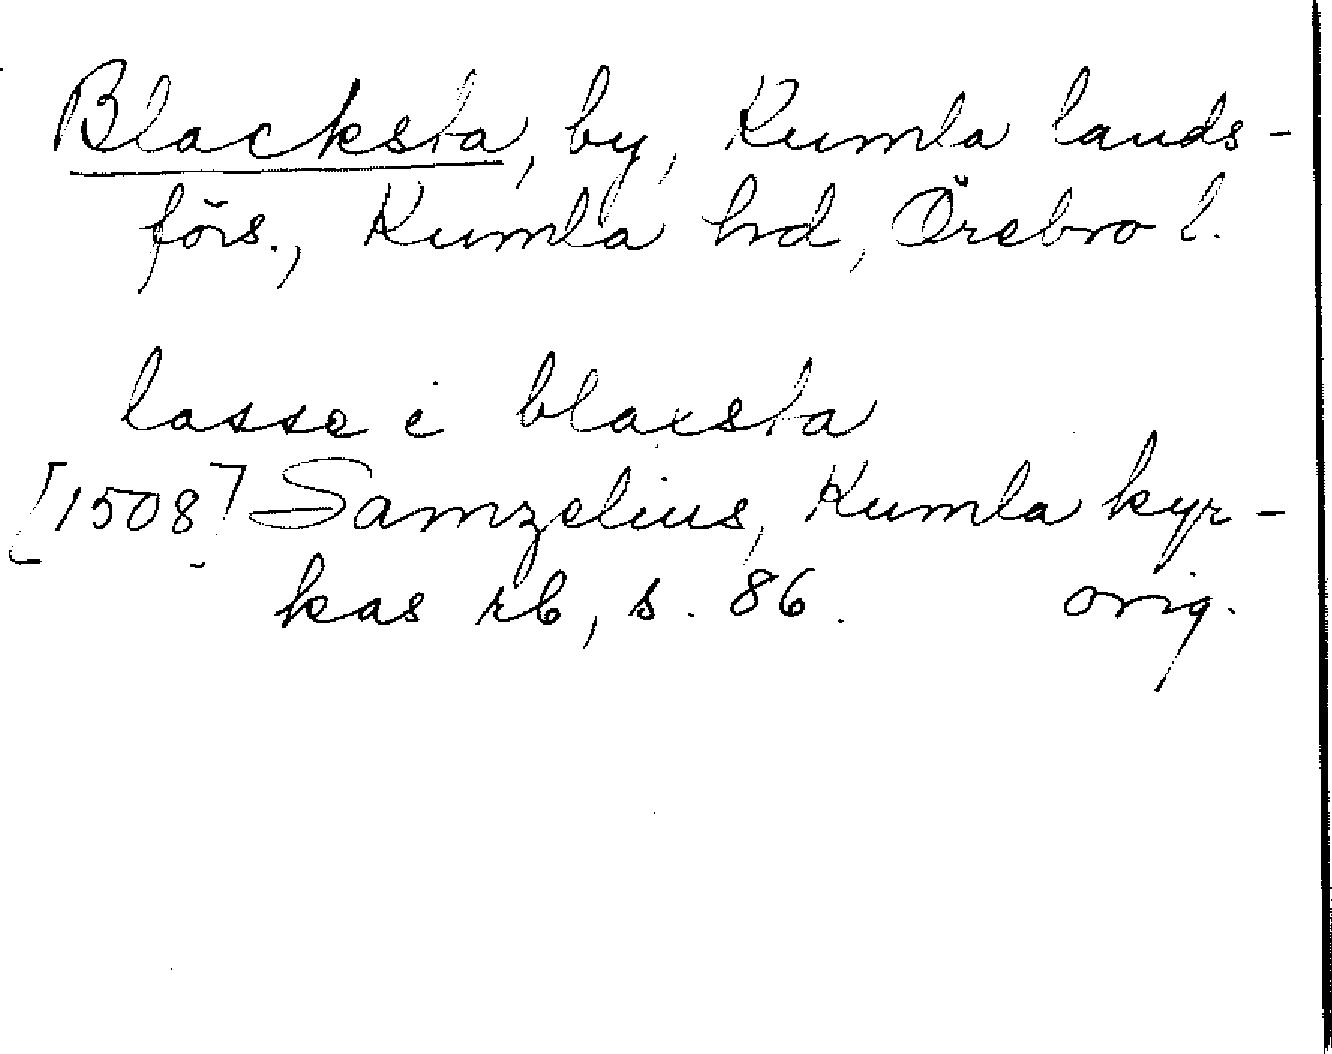 Blacksta, by, Kumla lands-
förs., Kumla hrd, Örebro l.
lasse i blaxsta
[1508] Samzelius, Kumla kyr-
kas rb, s. 86. orig.